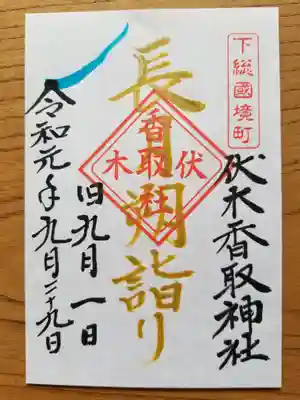 下総國境町
伏木香取神社
長月朔詣り
伏木
香取
社
旧九月一日
令和元年九月二十九日